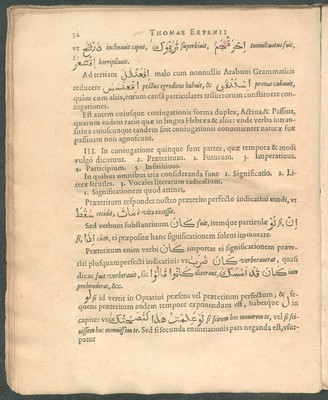 32 THOMAE ERPENII
inclinavit caput, superbivit, tumultuatus fuit,
horripilavit.
Ad tertium malo cum nonnullis Arabum Grammaticis
reducere pectus egrediens habuit, & pronus cubavit,
quàm cum aliis, eorum causâ particulares triliterorum constituere con-
jugationes.
Est autem cujusque conjugationis forma duplex, Activa & Passiva,
quarum eadem ratio quæ in lingua Hebræa & aliis: unde verba intran-
sitiva cujuscunque tandem sint conjugationis convenienter naturæ suæ
passivum non agnoscunt.
III. In conjugatione quinque sunt partes, quæ tempora & modi
vulgò dicuntur. 1. Præteritum. 2. Futurum. 3. Imperativus.
4. Participium. 5. Infinitivus.
In quibus omnibus tria consideranda sunt 1. Significatio. 2. Li-
teræ serviles. 3. Vocales literarum radicalium.
1. Significationem quod attinet,
Præteritum respondet nostro præterito perfecto indicativi modi, ut
cecidit, vita excessit.
Sed verbum substantivum كَانَ fuit, itemque particulæ
إِنْ, لَوْ si, إِذَا cùm, ei præpositæ hanc significationem solent immutare.
Præteritum enim verbi كَانَ importat ei significationem præte-
riti plusquamperfecti indicativi: ut كَانَ ضَرَبَ verberaverat, quasi
dicas fuit verberavit, sic كَانُوا قَالُوا dixerant, كَانَ قَدْ أَمْسَكَ jam
prehenderat, &c.
لَوْ si id vertit in Optativi præsens vel præteritum perfectum; &, se-
quens præteritum eodem tempore exponendum est, habetque لَ in
capite: ut si scirem hoc monerem te, vel si sci-
vissem hoc monuissem te. Sed si secunda enuntiationis pars neganda est, usur-
patur